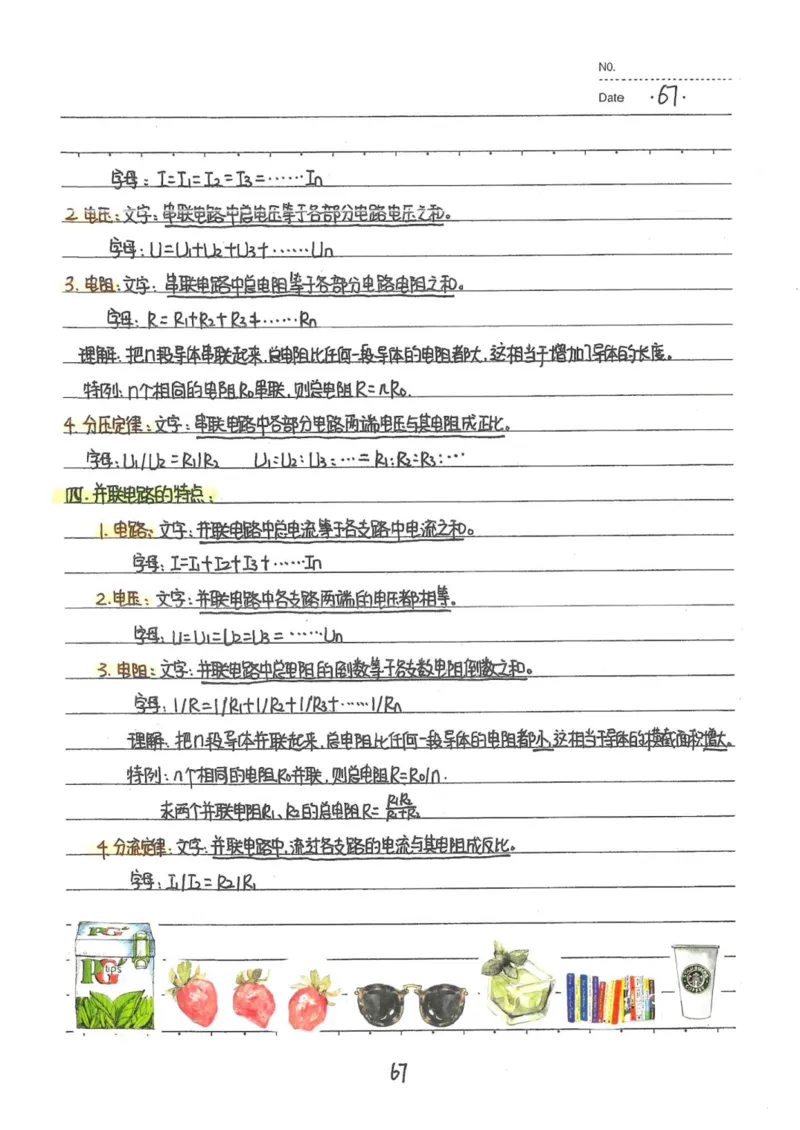 NO.
Date ·67·
字母: I=I1=I2=I3=……In
2.电压:文字:串联电路中总电压等于各部分电路电压之和。
字母:U=U1+U2+U3+……Un
3.电阻:文字:串联电路中总电阻等于各部分电路电阻之和。
字母:R=R1+R2+R3+……Rn
理解:把n段导体串联起来,总电阻比任何一段导体的电阻都大,这相当于增加了导体的长度。
特例:n个相同的电阻R0串联,则总电阻R=nR0.
4.分压定律:文字:串联电路中各部分电路两端电压与其电阻成正比。
字母:U1/U2=R1/R2 U1:U2:U3:…=R1:R2:R3:…
四.并联电路的特点:
1.电路:文字:并联电路中总电流等于各支路中电流之和。
字母:I=I1+I2+I3+……In
2.电压:文字:并联电路中各支路两端的电压都相等。
字母:U=U1=U2=U3=……Un
3.电阻:文字:并联电路中总电阻的倒数等于各支数电阻倒数之和。
字母:1/R=1/R1+1/R2+1/R3+……1/Rn
理解:把n段导体并联起来,总电阻比任何一段导体的电阻都小,这相当于导体的横截面积增大。
特例:n个相同的电阻R0并联,则总电阻R=R0/n.
求两个并联电阻R1、R2的总电阻R=R1R2/R1+R2
4.分流定律:文字:并联电路中,流过各支路的电流与其电阻成反比。
字母:I1/I2=R2/R1
PG
PG tips
67